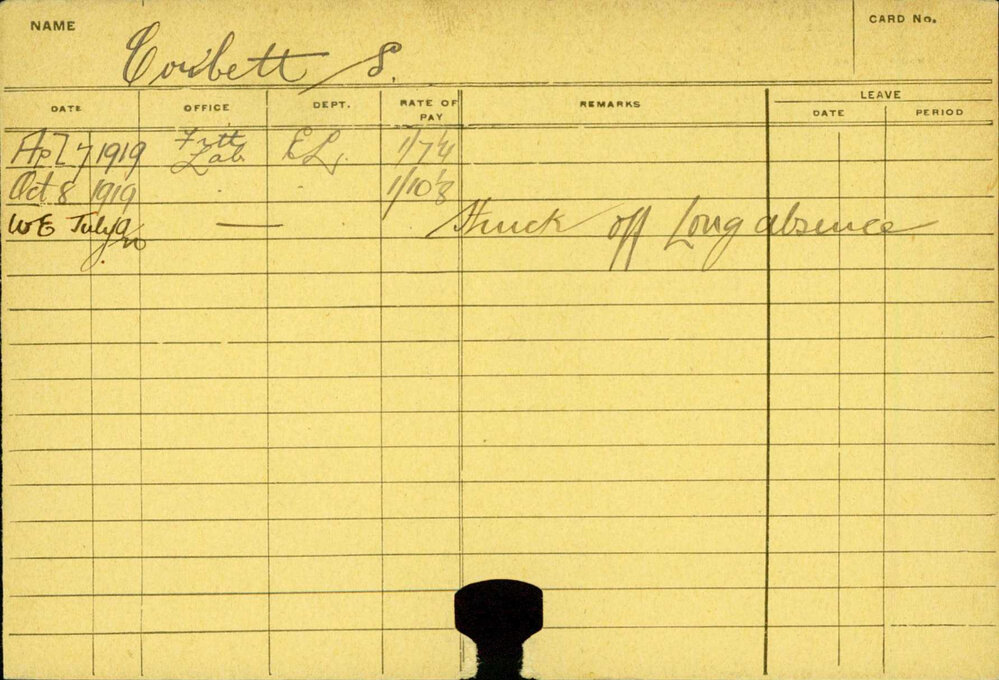 NAME
CARD No.
Corbett S.
DATE OFFICE DEPT. RATE OF PAY REMARKS LEAVE
DATE PERIOD
Apl 7 1919 Fttr Lab E L. 1/7¼
Oct 8 1919 1/10⅛
WE July 9/20 — Struck off Long absence